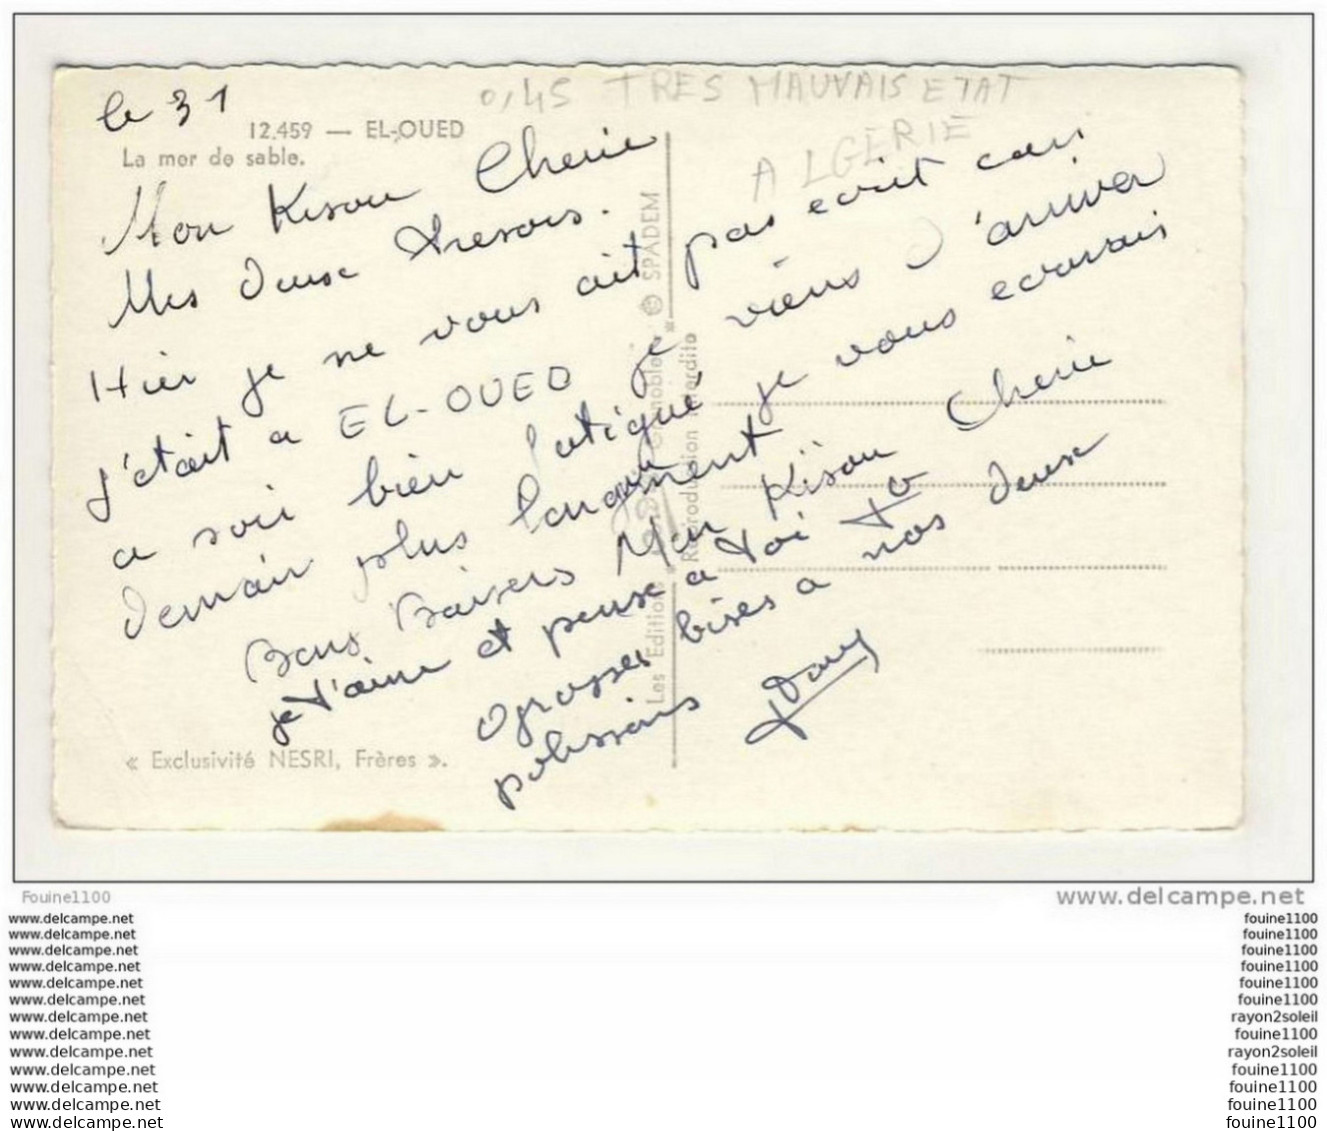 0,45 TRES MAUVAIS ETAT
ALGERIE
le 31
12.459 — EL-OUED
La mer de sable.
Mon Kison Cherie
Mes deux tresors.
Hier je ne vous ait pas ecrit car
j'etait a EL-OUED je viens d'arriver
a soir bien fatigué je vous ecrirais
demain plus longument
Bons Baisers Mon Kison Cherie
je t'aime et pense a toi
ogrosses bises a nos deux
polissons
« Exclusivité NESRI, Frères ».
Les Editions Grenoble © SPADEM
Reproduction interdite
Fouine1100
www.delcampe.net
www.delcampe.net
www.delcampe.net
www.delcampe.net
www.delcampe.net
www.delcampe.net
www.delcampe.net
www.delcampe.net
www.delcampe.net
www.delcampe.net
www.delcampe.net
www.delcampe.net
www.delcampe.net
www.delcampe.net
fouine1100
fouine1100
fouine1100
fouine1100
fouine1100
fouine1100
rayon2soleil
fouine1100
rayon2soleil
fouine1100
fouine1100
fouine1100
fouine1100